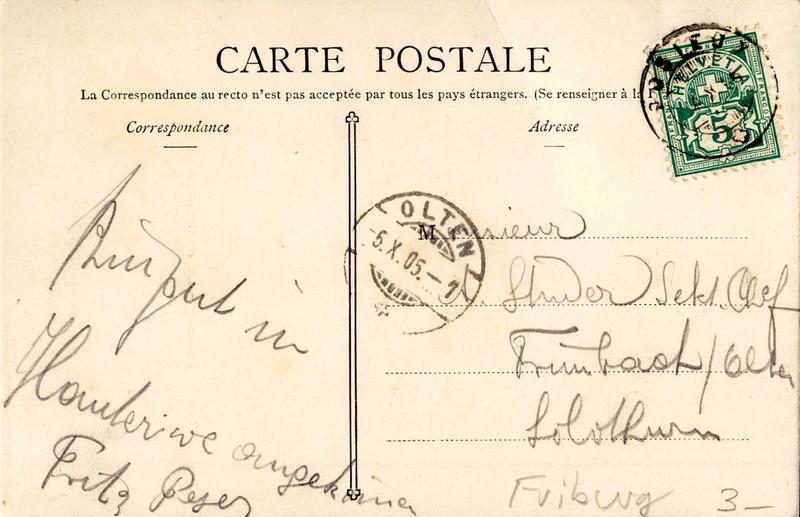 CARTE POSTALE
La Correspondance au recto n'est pas acceptée par tous les pays étrangers. (Se renseigner à la
Correspondance
Adresse
HELVETIA
FRANCO
5
OLTEN
5.X.05.-7
Monsieur
Studer Sekt. Chef
Trimbach/Olten
Solothurn
gut in
Hauterive angekommen
Fritz
Friburg 3-